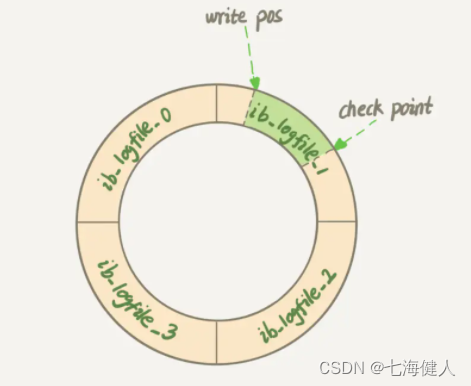 write pos
check point
ib_logfile_0
ib_logfile_1
ib_logfile_3
ib_logfile_2
CSDN @七海健人